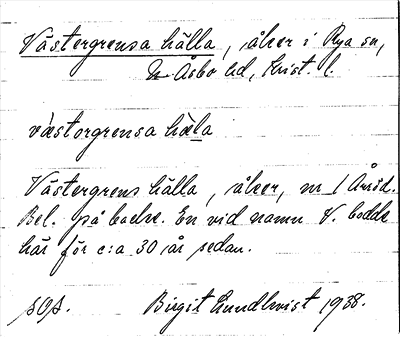 Västergrensa hälla, åker i Rya sn,
N Åsbo hd, Krist. l.
västorgrensa hæla
Västergrens hälla, åker, nr 1 Årröd.
Bel. på backe. En vid namn V. bodde
här för c:a 30 år sedan.
SOA. Birgit Lundkvist 1938.